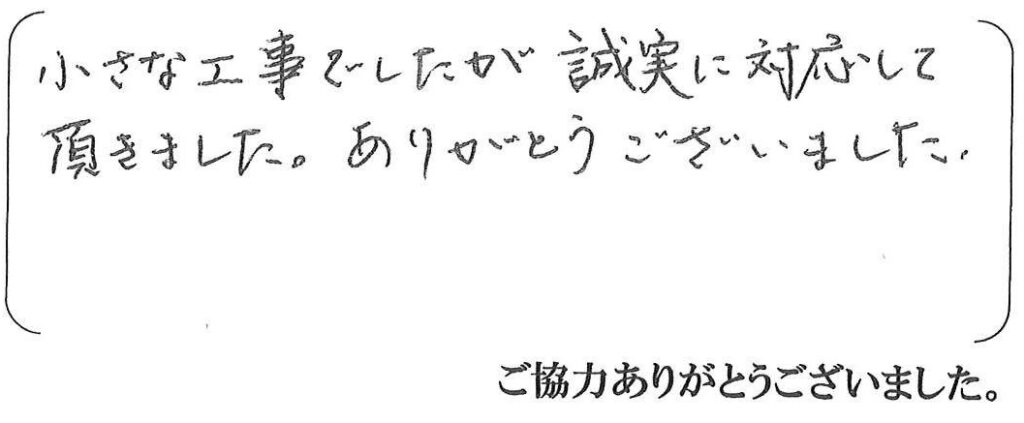 小さな工事でしたが誠実に対応して
頂きました。ありがとうございました.
ご協力ありがとうございました。